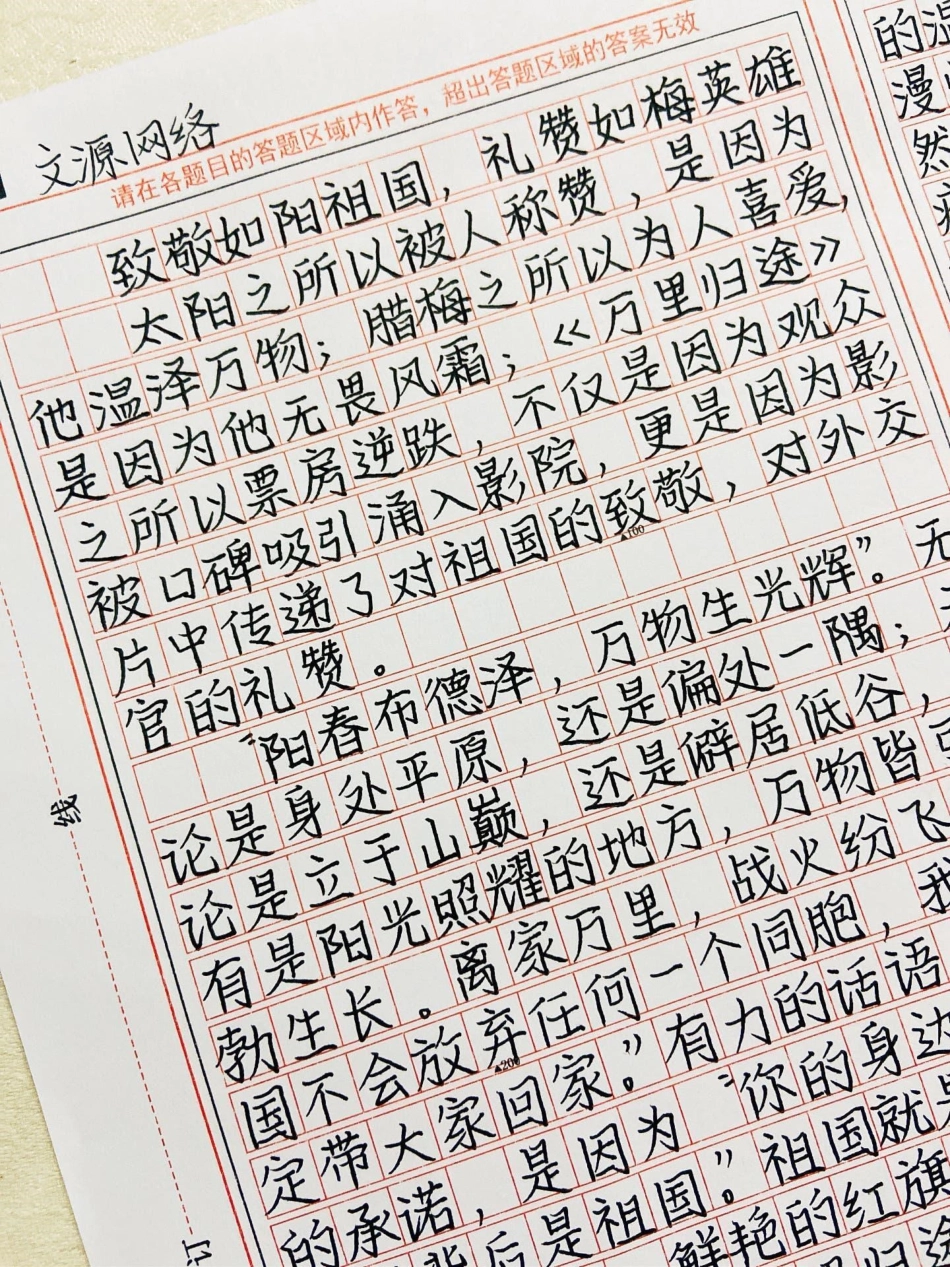 文源网络
请在各题目的答题区域内作答，超出答题区域的答案无效
致敬如阳祖国，礼赞如梅英雄
太阳之所以被人称赞，是因为
他温泽万物；腊梅之所以为人喜爱，
是因为他无畏风霜；《万里归途》
之所以票房逆跌，不仅是因为观众
被口碑吸引涌入影院，更是因为影
片中传递了对祖国的致敬，对外交
▲100
官的礼赞。
“阳春布德泽，万物生光辉”。无
论是身处平原，还是偏处一隅；
论是立于山巅，还是僻居低谷，
有是阳光照耀的地方，万物皆可
勃生长。离家万里，战火纷飞
国不会放弃任何一个同胞，我
▲200
定带大家回家。”有力的话语
的承诺，是因为“你的身边
背后是祖国。”祖国就
鲜艳的红旗
归途
线
的温
漫
然